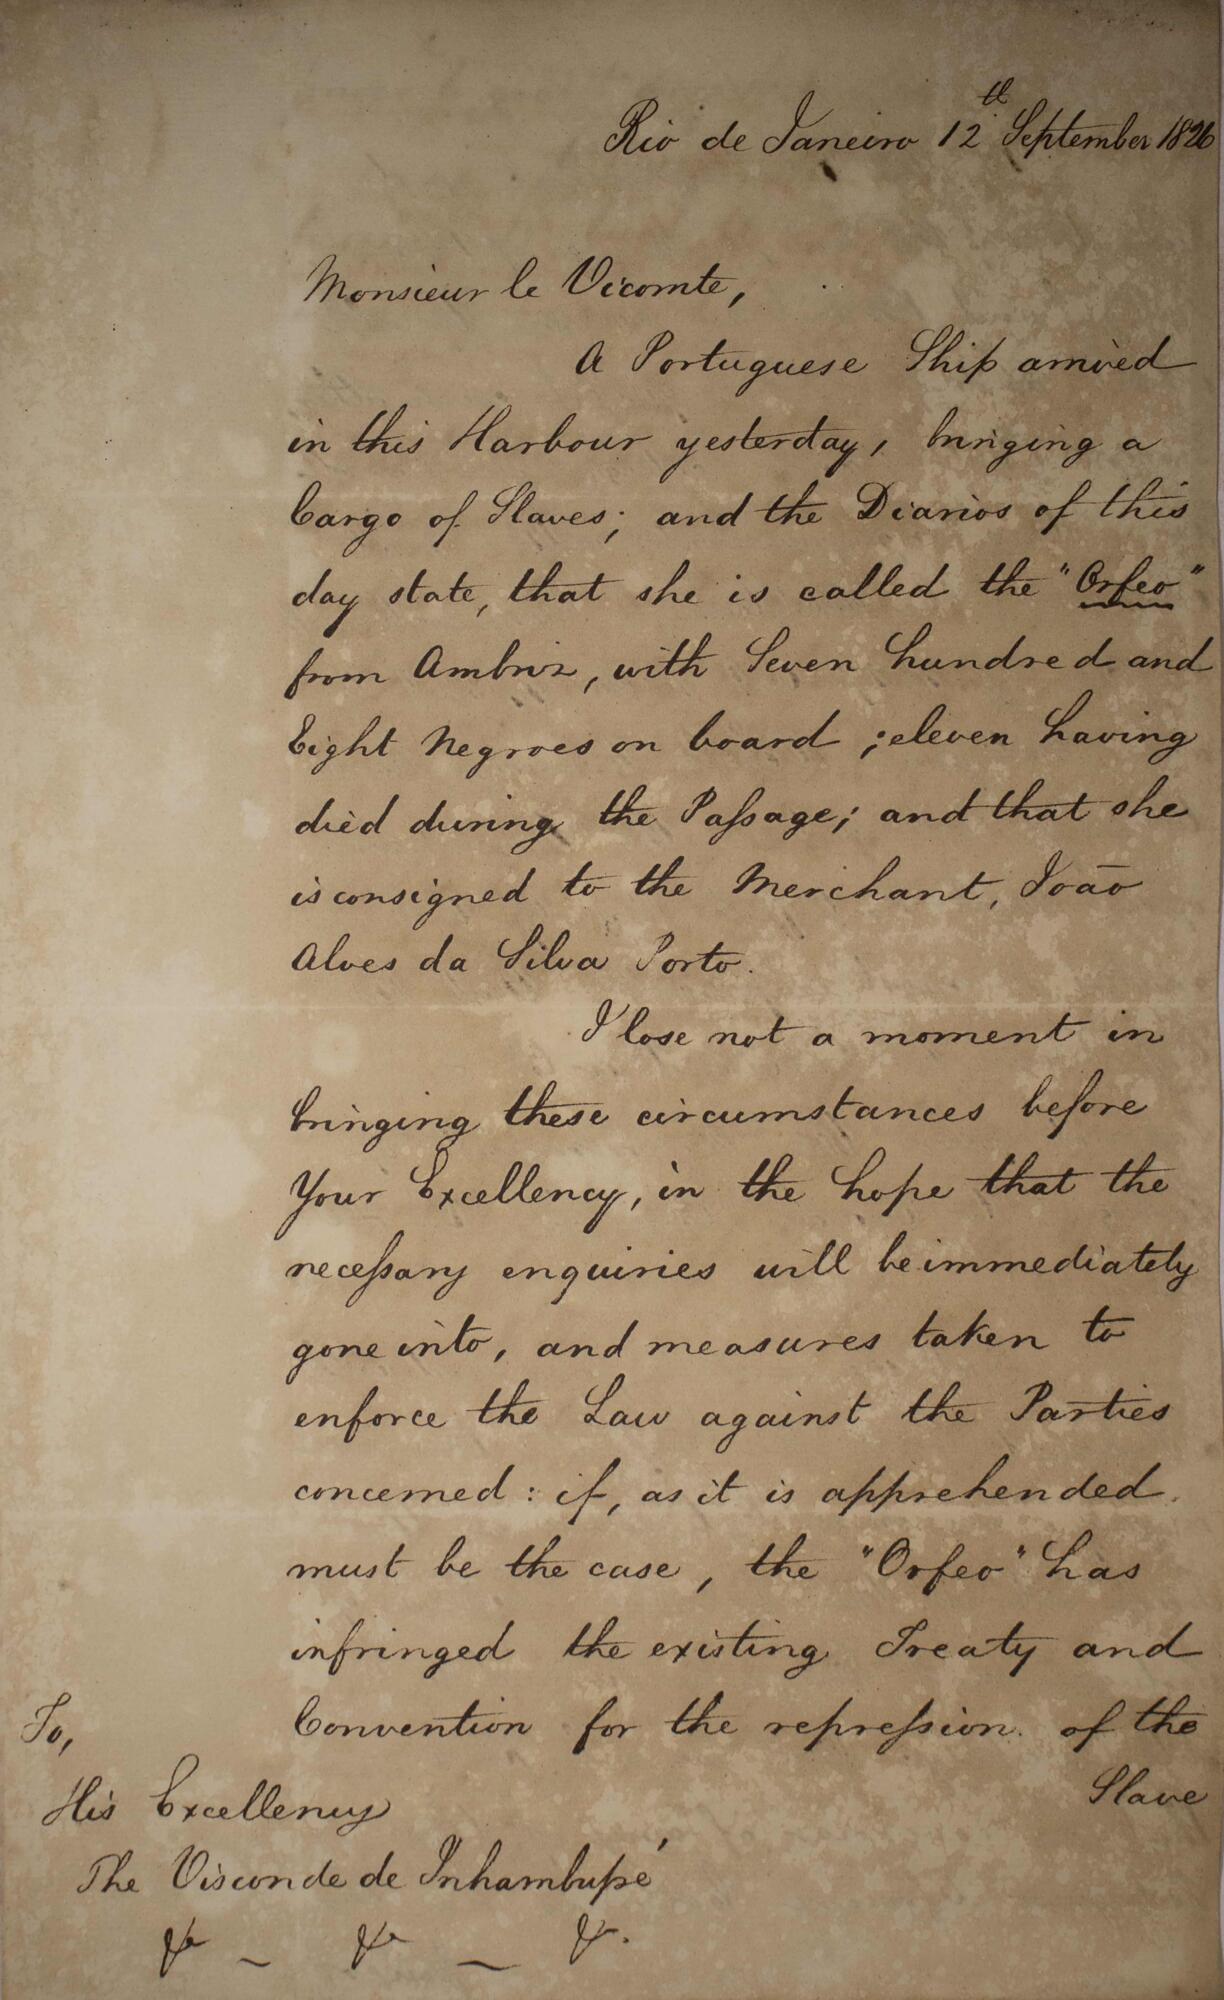 Rio de Janeiro 12th September 1826
Monsieur le Vicomte,
A Portuguese Ship arrived
in this Harbour yesterday, bringing a
Cargo of Slaves; and the Diarios of this
day state, that she is called the "Orfeo"
from Ambriz, with Seven hundred and
Eight Negroes on board; eleven having
died during the Passage; and that she
is consigned to the Merchant, João
Alves da Silva Porto.
I lose not a moment in
bringing these circumstances before
Your Excellency, in the hope that the
necessary enquiries will be immediately
gone into, and measures taken to
enforce the Law against the Parties
concerned: if, as it is apprehended
must be the case, the "Orfeo" has
infringed the existing Treaty and
Convention for the repression of the
Slave
To,
His Excellency
The Visconde de Inhambupé
&c _ &c _ &c.